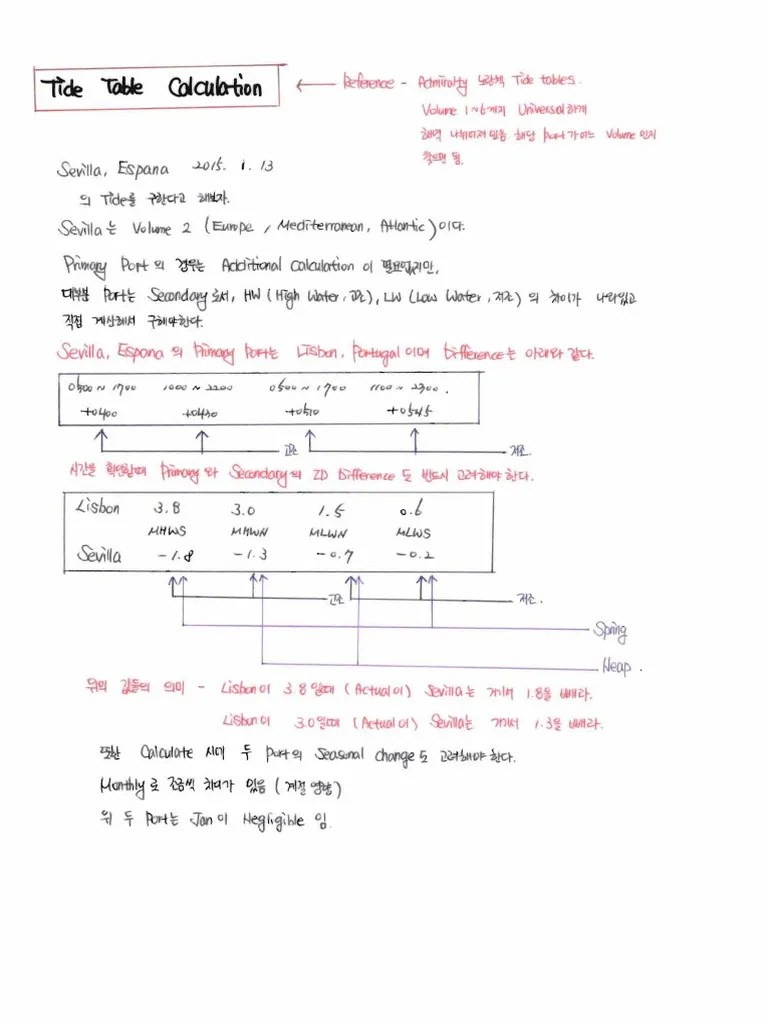 Tide Table Calculation ← Reference - Admiralty 노란책 Tide tables.
Volume 1~6까지 Universal하게
해역 나뉘어져있음 해당 Port가 어느 Volume 인지
찾으면 됨.
Sevilla, Espana 2015. 1. 13
의 Tide를 구한다고 해보자.
Sevilla는 Volume 2 (Europe, Mediterranean, Atlantic)이다.
Primary Port의 경우는 Additional Calculation이 필요없지만,
대부분 Port는 Secondary로서, HW (High Water, 고조), LW (Low Water, 저조)의 차이가 나와있고
직접 계산해서 구해야한다.
Sevilla, Espana 의 Primary Port는 Lisbon, Portugal이며 Difference는 아래와 같다.
0500~1700 1000~2200 0500~1700 1100~2300.
+0400 +0430 +0510 +0545
고조 저조.
시간을 확인할때 Primary와 Secondary의 ZD Difference도 반드시 고려해야 한다.
Lisbon 3.8 3.0 1.5 0.6
MHWS MHWN MLWN MLWS
Sevilla -1.8 -1.3 -0.7 -0.2
고조 저조.
Spring
Neap.
위의 값들의 의미 - Lisbon이 3.8일때 (Actual이) Sevilla는 거기서 1.8을 빼라.
Lisbon이 3.0일때 (Actual이) Sevilla는 거기서 1.3을 빼라.
또한 Calculate 시에 두 Port의 Seasonal Change도 고려해야 한다.
Monthly로 조금씩 차이가 있음 (계절 영향)
위 두 Port는 Jan이 Negligible 임.